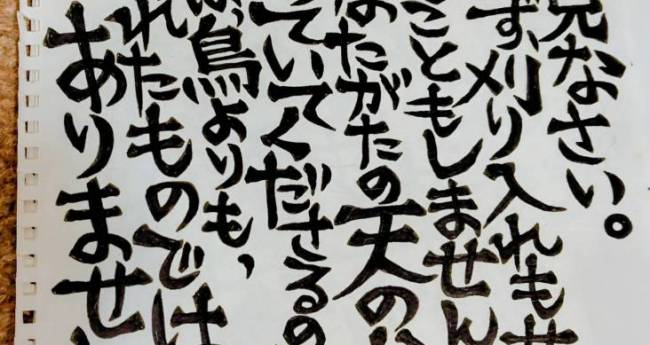 見なさい。
ず、刈り入れもせ
こともしません
なたがたの天の
ていてくださるの
鳥よりも、
れたものでは
ありませ